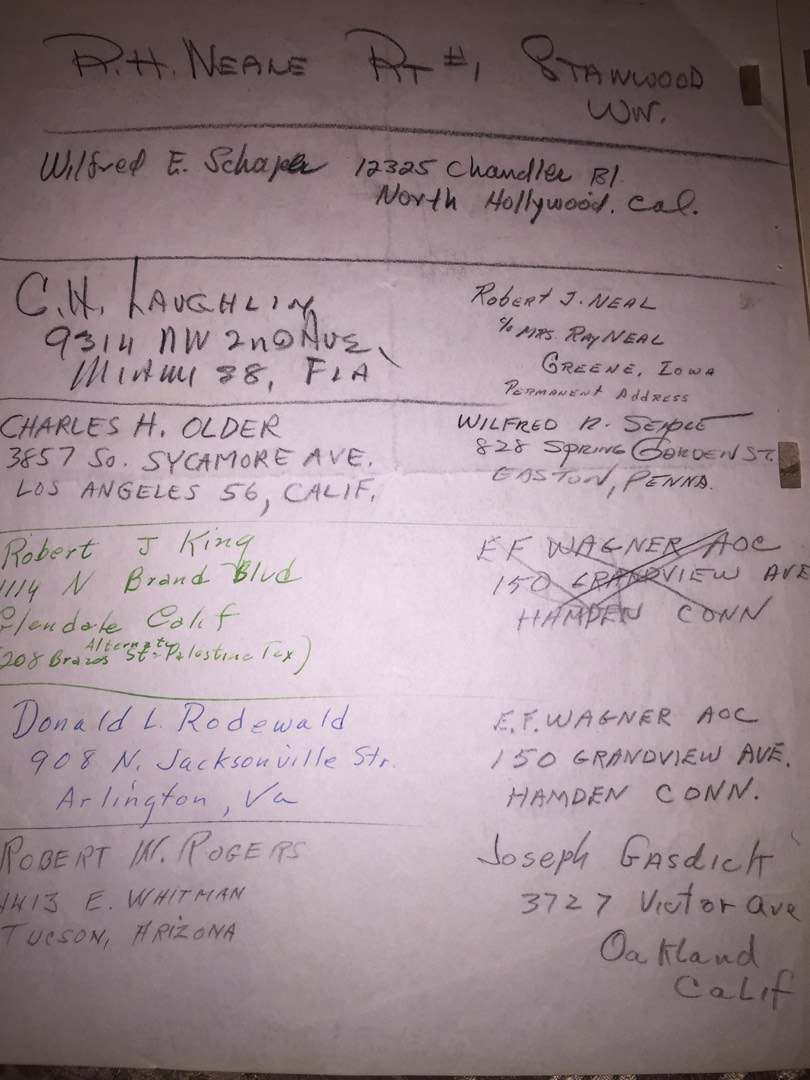 R.H. NEALE RT #1 STANWOOD
WN.
Wilfred E. Schaper 12325 Chandler Bl
North Hollywood. Cal.
C.H. LAUGHLIN
9314 NW 2ND AVE,
MIAMI 38, FLA
Robert J. NEAL
% MRS. RAY NEAL
GREENE, IOWA
PERMANENT ADDRESS
CHARLES H. OLDER
3857 So. SYCAMORE AVE.
LOS ANGELES 56, CALIF.
WILFRED R. SEMPLE
828 SPRING GARDEN ST.
EASTON, PENNA.
Robert J King
1114 N Brand Blvd
Glendale Calif
Alternate
(208 Brazos St - Palestine Tex)
EF WAGNER AOC
150 GRANDVIEW AVE
HAMDEN CONN
Donald L. Rodewald
908 N. Jacksonville Str.
Arlington, Va
E.F. WAGNER AOC
150 GRANDVIEW AVE.
HAMDEN CONN.
ROBERT W. ROGERS
1413 E. WHITMAN
TUCSON, ARIZONA
Joseph Gasdick
3727 Victor ave
Oakland
Calif